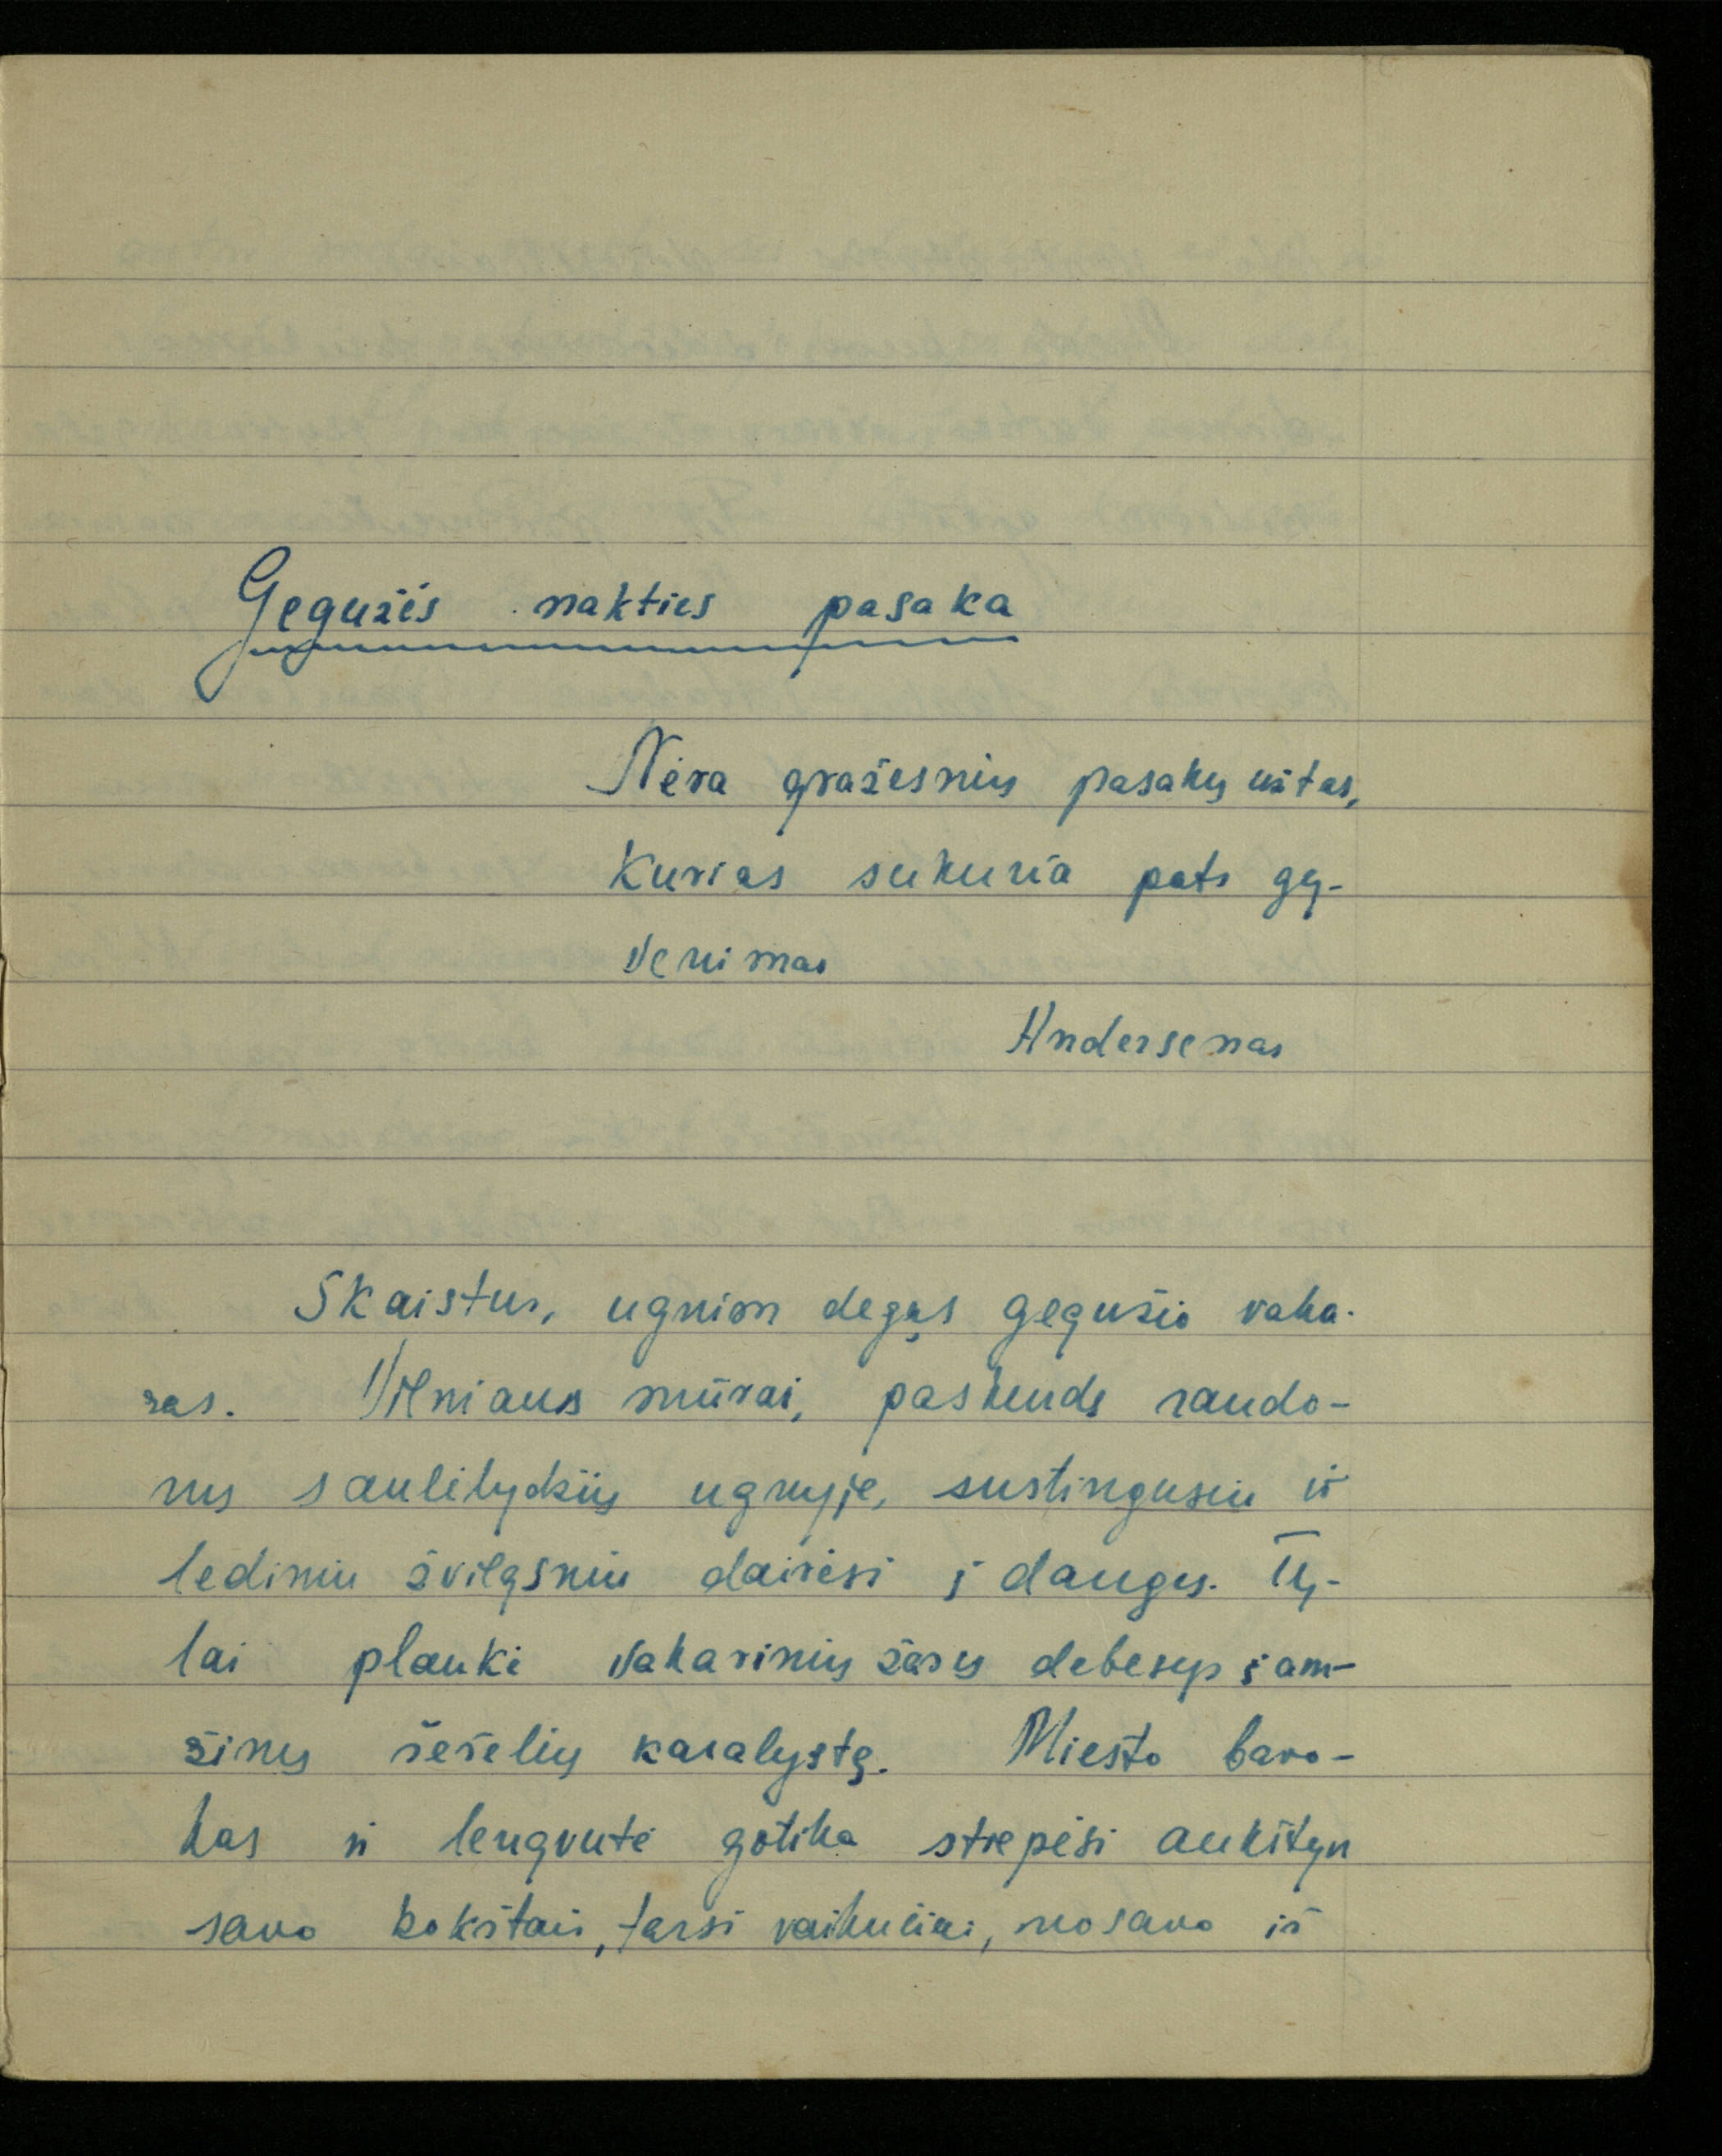 Gegužės nakties pasaka
Nėra gražesnių pasakų už tas,
Kurias sukuria pats gy-
venimas
Andersenas
Skaistus, ugnim degąs gegužio vaka-
ras. Vilniaus mūrai, paskendę raudo-
nų saulėlydžių ugnyje, sustingusiu ir
lediniu žvilgsniu dairėsi į dangų. Ty-
lai plaukė vakarinių žarų debesys į am-
žinų šešėlių karalystę. Miesto baro-
kas ir lengvutė gotika stiepėsi aukštyn
savo bokštais, tarsi vaikučiai, nosavo iš